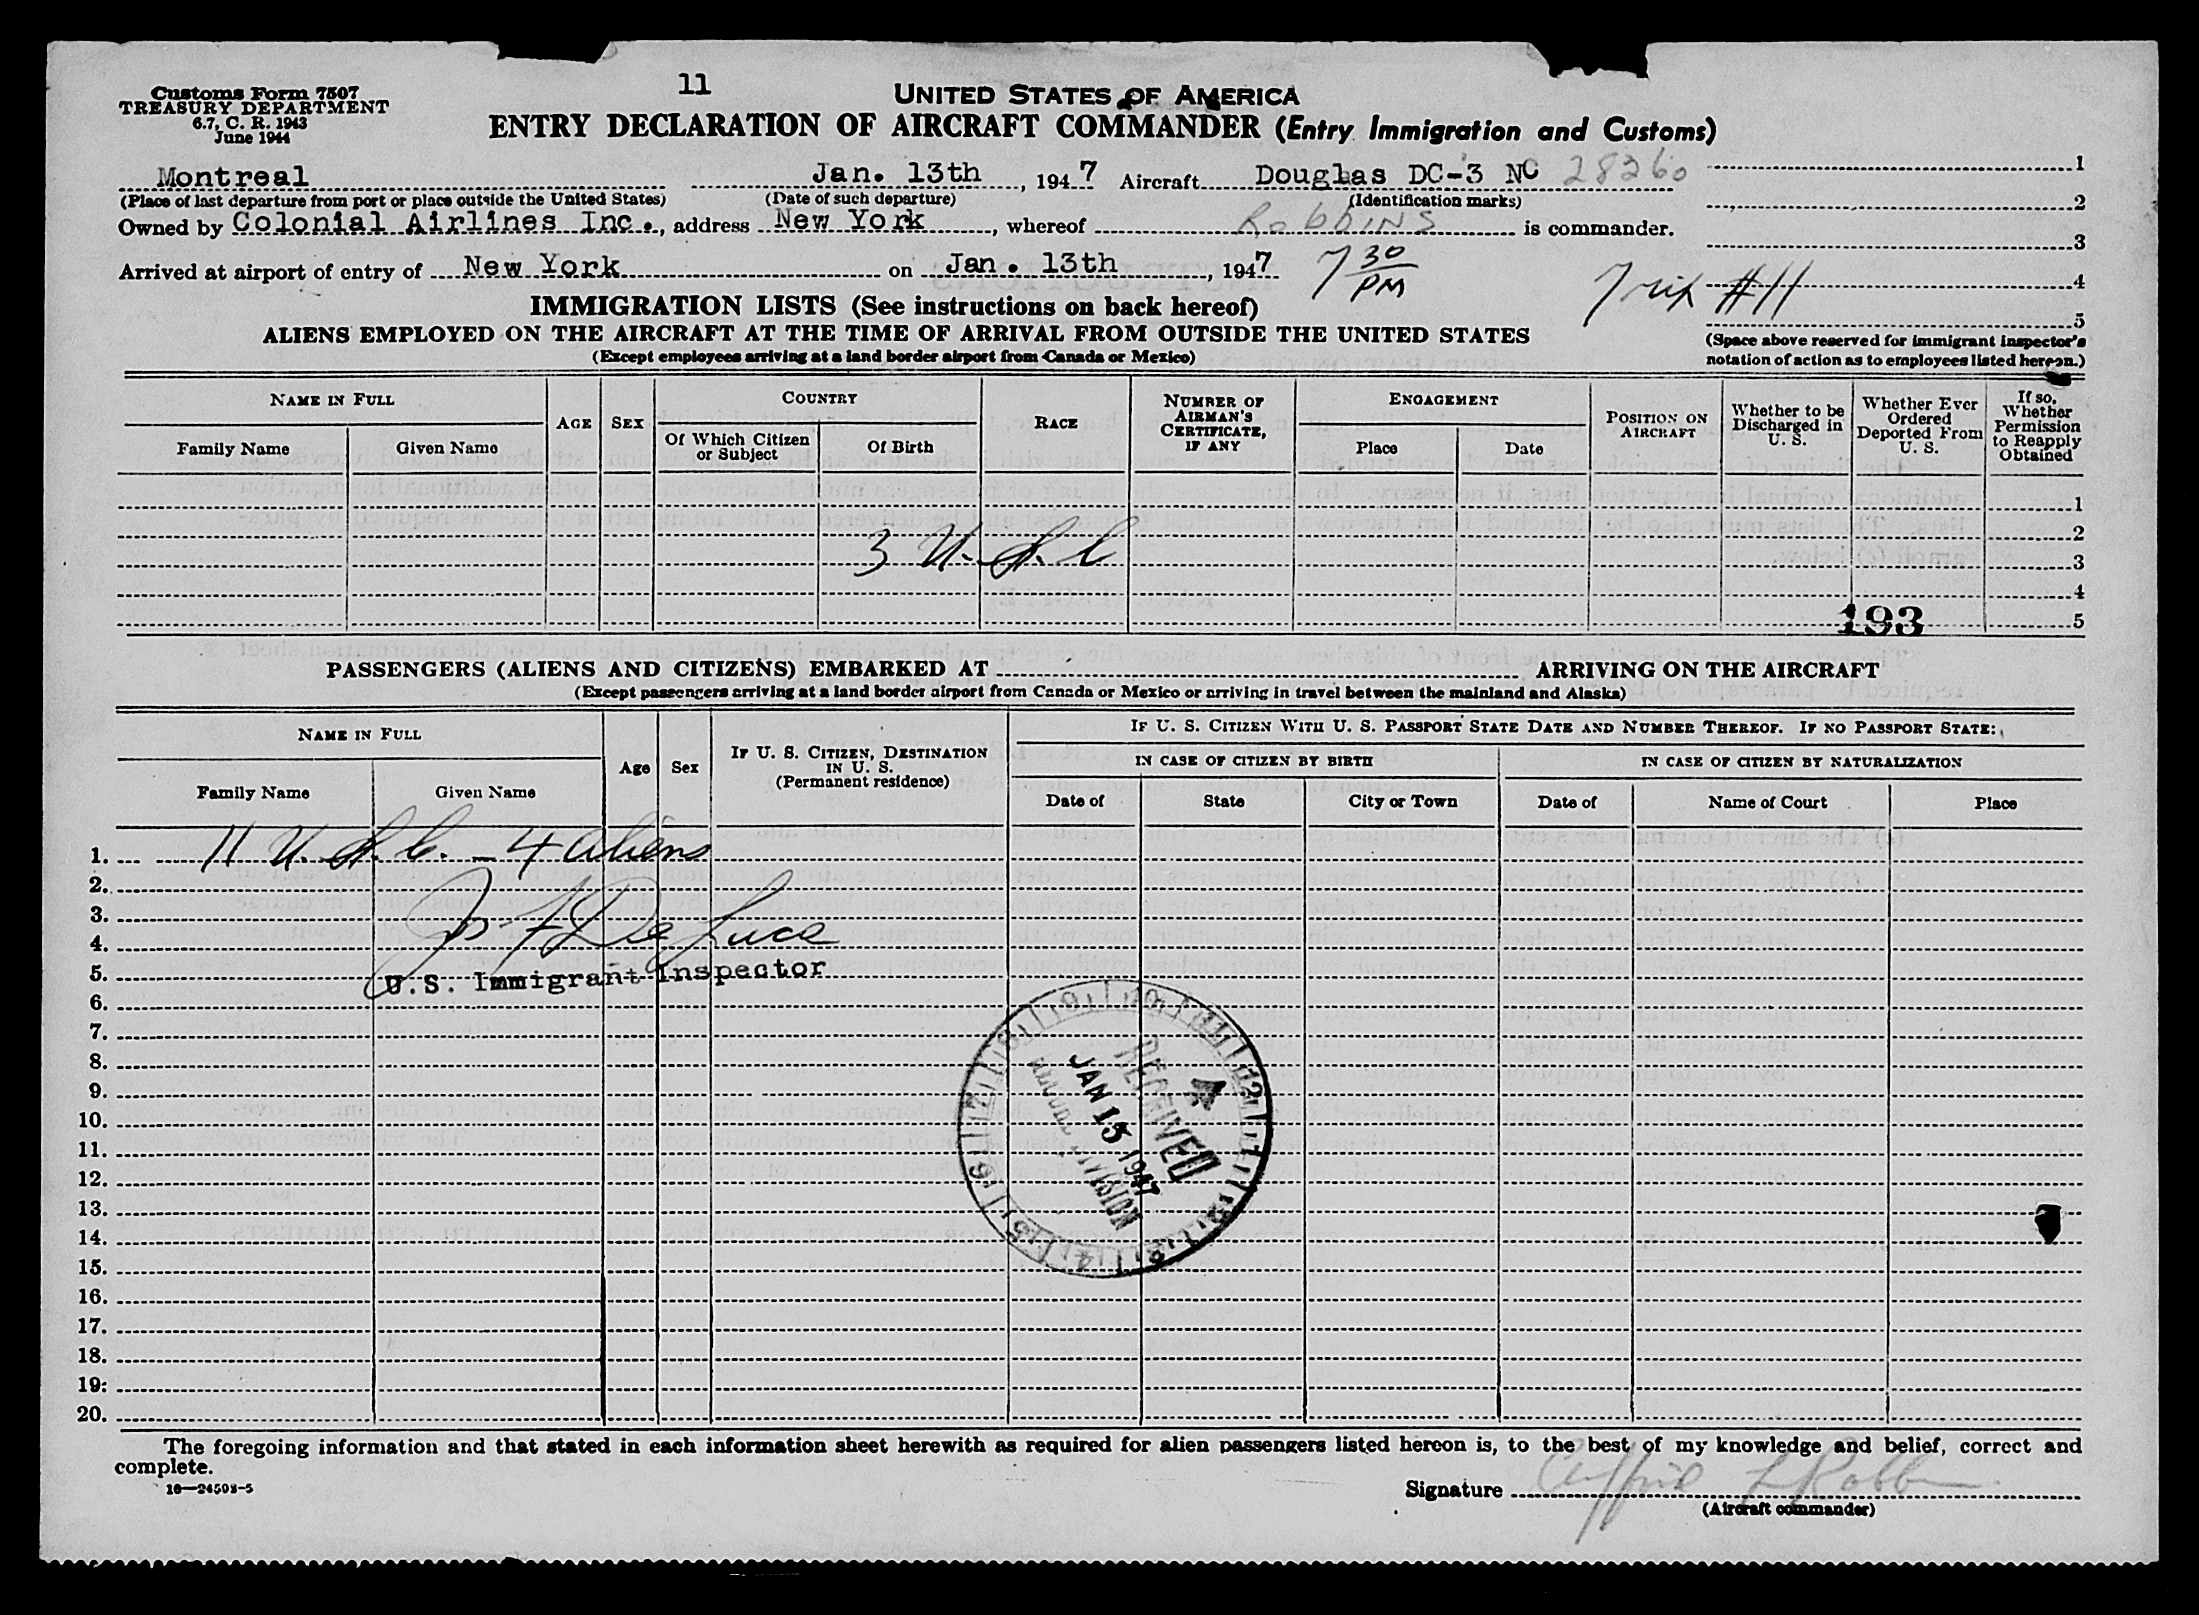 Customs Form 7507
TREASURY DEPARTMENT
6.7, C. R. 1943
June 1944
11
UNITED STATES OF AMERICA
ENTRY DECLARATION OF AIRCRAFT COMMANDER (Entry Immigration and Customs)
Montreal Jan. 13th, 1947 Aircraft Douglas DC-3 NC 28360 1
(Place of last departure from port or place outside the United States) (Date of such departure) (Identification marks) 2
Owned by Colonial Airlines Inc., address New York, whereof Robbins is commander.
3
Arrived at airport of entry of New York on Jan. 13th, 1947 7 30 PM
Trip #11 4
5
IMMIGRATION LISTS (See instructions on back hereof)
ALIENS EMPLOYED ON THE AIRCRAFT AT THE TIME OF ARRIVAL FROM OUTSIDE THE UNITED STATES
(Except employees arriving at a land border airport from Canada or Mexico)
(Space above reserved for immigrant inspector's
notation of action as to employees listed hereon.)
NAME IN FULL
Family Name Given Name
AGE SEX
COUNTRY
Of Which Citizen or Subject
Of Birth
RACE
NUMBER OF AIRMAN'S CERTIFICATE, IF ANY
ENGAGEMENT
Place Date
POSITION ON AIRCRAFT
Whether to be Discharged in U. S.
Whether Ever Ordered Deported From U. S.
If so, Whether Permission to Reapply Obtained
1
2
3 U.S.C 3
4
193 5
PASSENGERS (ALIENS AND CITIZENS) EMBARKED AT ARRIVING ON THE AIRCRAFT
(Except passengers arriving at a land border airport from Canada or Mexico or arriving in travel between the mainland and Alaska)
NAME IN FULL
Family Name Given Name
Age Sex
IF U. S. CITIZEN, DESTINATION IN U. S.
(Permanent residence)
IF U. S. CITIZEN WITH U. S. PASSPORT STATE DATE AND NUMBER THEREOF. IF NO PASSPORT STATE:
IN CASE OF CITIZEN BY BIRTH
Date of State City or Town
IN CASE OF CITIZEN BY NATURALIZATION
Date of Name of Court Place
1. 11 U.S.C. - 4 aliens
2.
3. De Luca
4.
5. U.S. Immigrant Inspector
6.
7.
8.
9.
10.
11.
12.
13.
14.
15.
16.
17.
18.
19.
20.
RECEIVED
JAN 13 1947
DIVISION
The foregoing information and that stated in each information sheet herewith as required for alien passengers listed hereon is, to the best of my knowledge and belief, correct and
complete.
16—24598-5
Signature
(Aircraft commander)